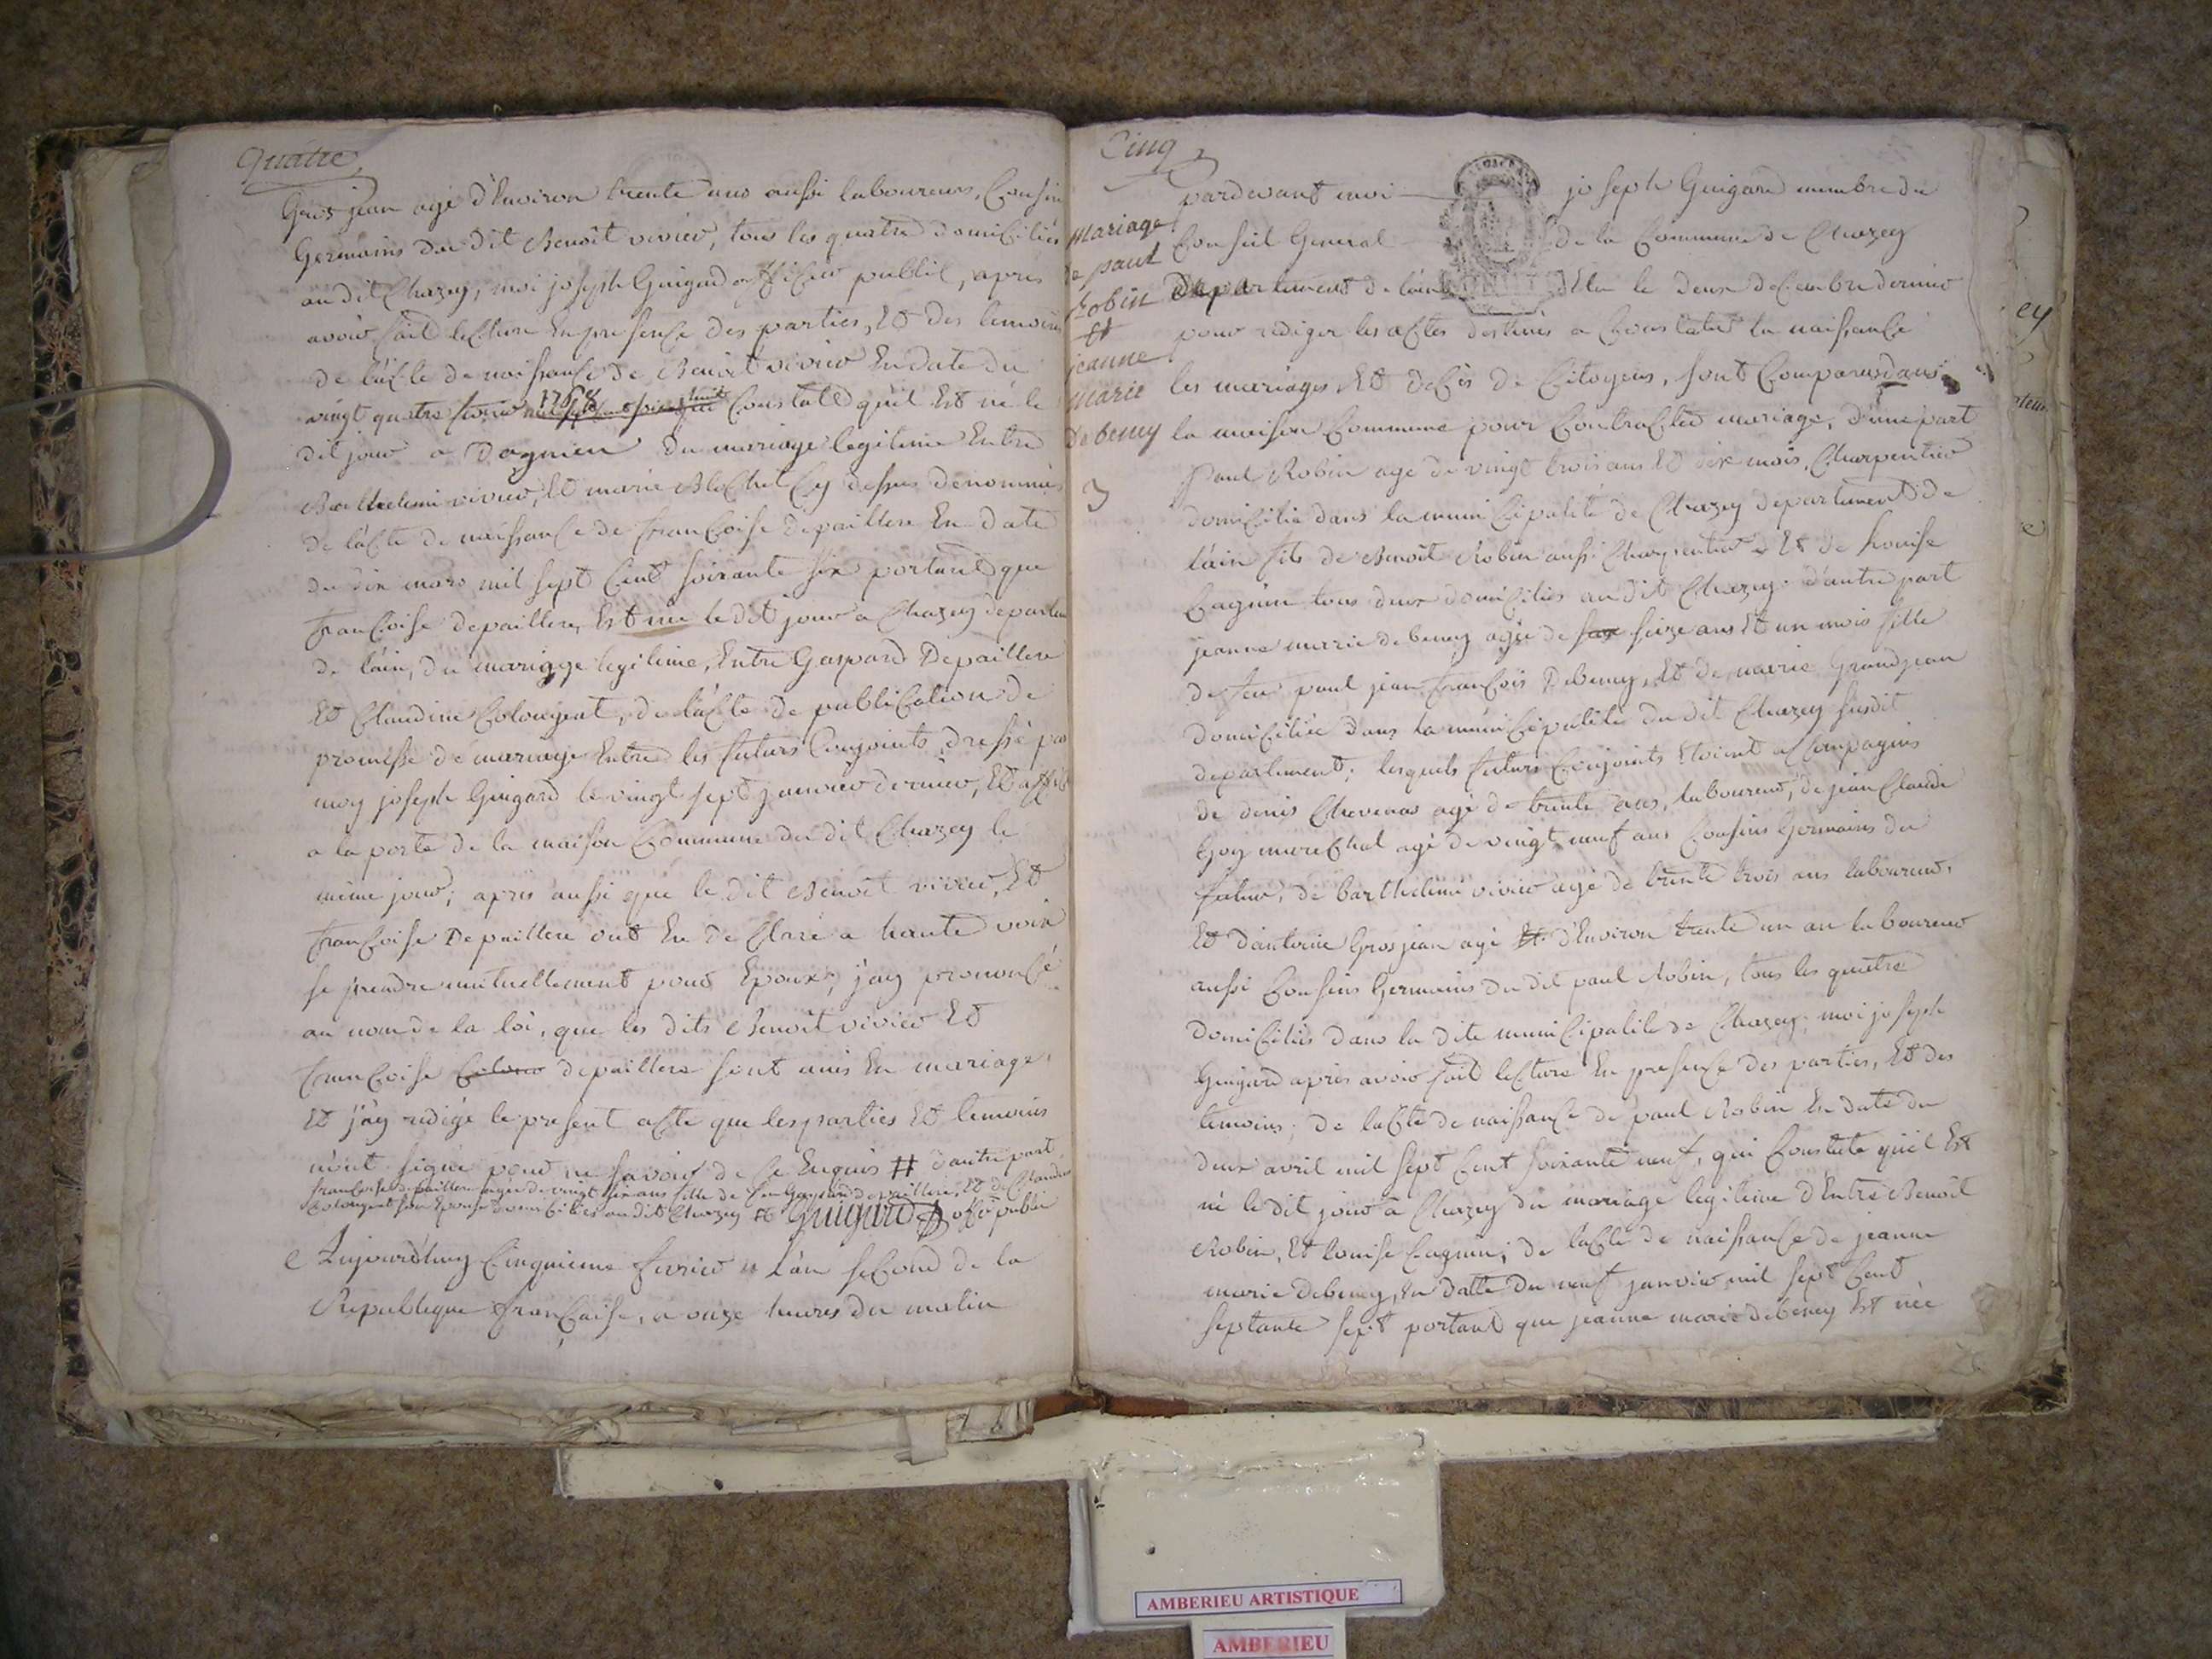 Quatre
Gros jean agé d'Environ trente ans aussi laboureurs, Cousin
Germains du dit Benoît vivier, tous les quatre domiciliés
au dit Chazey, moi joseph Guigard officier public, après
avoir fait lecture En presence des parties, Et des temoins
de l'acte de naissance de Benoit vivier En date du
vingt quatre 1768 Constate qu'il Est né le
dit jour a Dagnieu du mariage legitime Entre
Barthelemi vivier, Et marie Blechet Cy dessus denommés
de l'acte de naissance de francoise depaillere En date
du dix mars mil sept Cent soixante six portant que
francoise depaillere, Est née le dit jour a Chazey departem
de l'ain, du mariage legitime, Entre Gaspard Depaillere
Et Claudine Colongeat, de l'acte de publication de
promesse de mariage Entre les futurs Conjoints dressé par
moy joseph Guigard le vingt sept janvier dernier, Et affiché
a la porte de la maison Commune du dit Chazey le
même jour; après aussi que le dit Benoît vivier, Et
francoise Depaillere ont En declaré a haute voix
se prendre mutuellement pour Epoux; j'ay prononcé
au nom de la loi, que les dits Benoît vivier Et
francoise depaillere sont unis En mariage,
Et j'ay redigé le present acte que les parties Et temoins
n'ont signé pour ne savoir de ce Enquis # d'autre part
francoise depaillere agée de vingt six ans fille de feu Gaspard depaillere, Et de Claudine
Colongeat son Epouse domiciliés au dit Chazey # Guigard off. public
Aujourd'huy Cinquieme fevrier L'an second de la
Republique française, a onze heures du matin
Cinq
pardevant moi joseph Guigard membre du
Conseil General de la Commune de Chazey
Departement de l'ain Elu le deux decembre dernier
pour rediger les actes destinés a Constater la naissance
les mariages Et decès de Citoyens, sont Comparus dans
la maison Commune pour Contracter mariage, d'une part
Paul Robin agé de vingt trois ans Et dix mois, Charpentier
domicilié dans la municipalité de Chazey departement de
l'ain fils de Benoît Robin aussi Charpentier Et de Louise
Cagnin tous deux domiciliés au dit Chazey. d'autre part
jeanne marie debeney agée de seize ans Et un mois fille
de feu paul jean françois Debeney, Et de marie Grandjean
domiciliée dans la municipalité du dit Chazey susdit
departement; lesquels futurs Conjoints Etoient accompagnés
de denis Chevenas agé de trente ans, laboureur, de jean Claude
Goy marechal agé de vingt neuf ans Cousins Germains du
futur, de barthelemi vivier agé de trente trois ans laboureur,
Et d'antoine Gros jean agé d'Environ trente un an laboureur
aussi Cousins Germains du dit paul Robin, tous les quatre
domiciliés dans la dite municipalité de Chazey; moi joseph
Guigard après avoir fait lecture En presence des parties, Et des
temoins; de l'acte de naissance de paul Robin En date du
deux avril mil sept Cent soixante neuf, qui Constate qu'il Est
né le dit jour a Chazey du mariage legitime d'Entre Benoît
Robin, Et louise Cagnin; de l'acte de naissance de jeanne
marie debeney, En datte du neuf janvier mil sept Cent
septante sept portant que jeanne marie debeney Est née
Mariage
de paul
Robin
Et
jeanne
marie
debeney
3
AMBERIEU ARTISTIQUE
AMBERIEU